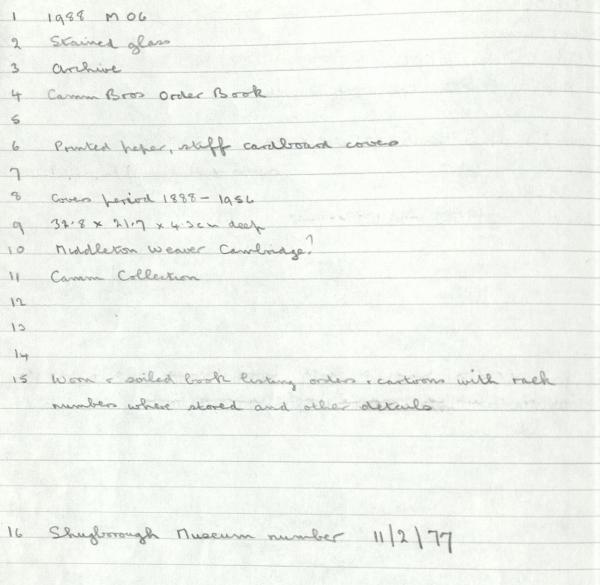 1 1988 M 06
2 Stained glass
3 Archive
4 Camm Bros Order Book
5
6 Printed paper, stiff cardboard covers
7
8 Covers period 1888 - 1956
9 32.8 x 21.7 x 4.3cm deep
10 Middleton Weaver Cambridge?
11 Camm Collection
12
13
14
15 Worn & soiled book listing orders & cartoons with rack
numbers where stored and other details
16 Shugborough Museum number 11/2/77